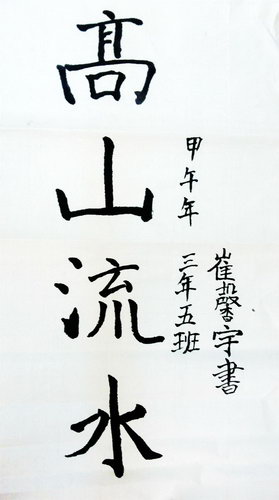 髙山流水
甲午年
三年五班
崔馨宇書